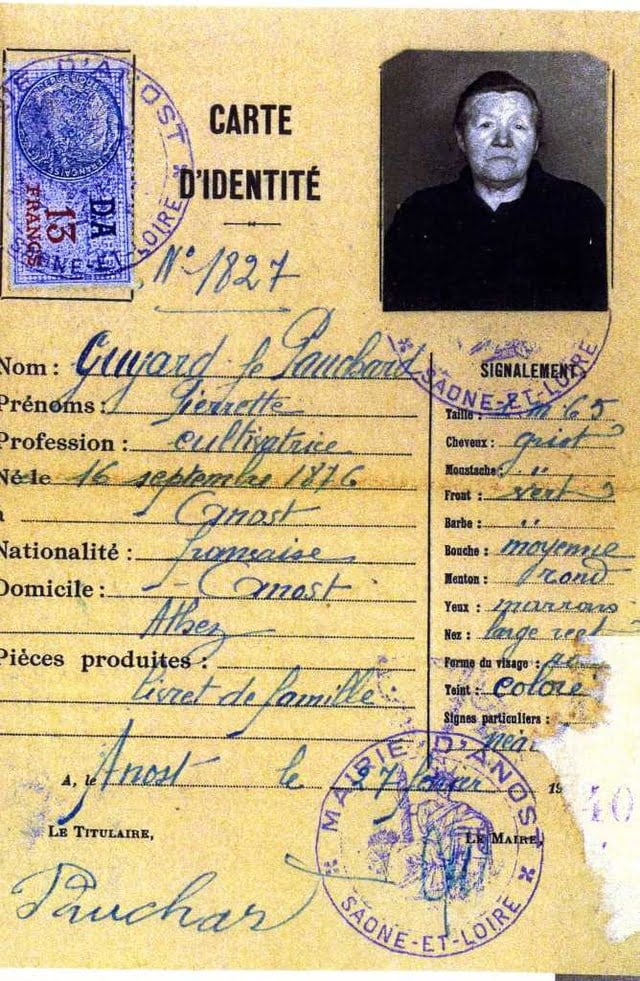 MAIRIE D'ANOST
SAONE-ET-LOIRE
DA
13
FRANCS
CARTE
D'IDENTITÉ
N° 1827
Nom : Guyard fe Pauchard
Prénoms : Pierrette
Profession : cultivatrice
Né le 16 septembre 1876
à Anost
Nationalité : française
Domicile : Anost
Athez
Pièces produites :
livret de famille
A, le Anost le 27 février 19
LE TITULAIRE,
LE MAIRE,
Pauchar
SAONE-ET-LOIRE
SIGNALEMENT
Taille : 1 m 65
Cheveux :
Moustache : "
Front :
Barbe : "
Bouche : moyenne
Menton : rond
Yeux : marrons
Nez : large rect
Forme du visage :
Teint : coloré
Signes particuliers :
néa
MAIRIE D'ANOST
SAONE-ET-LOIRE
40